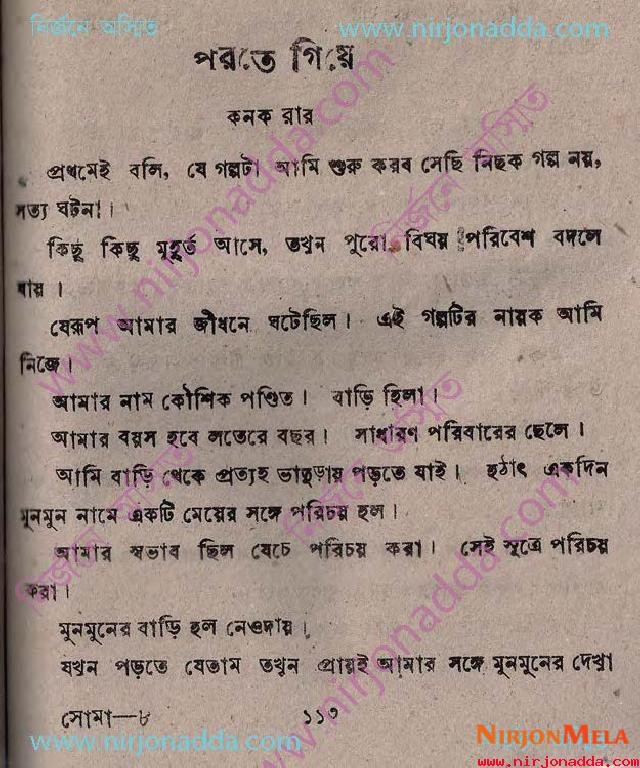 নির্জনে অস্মিতা www.nirjonadda.com
পরতে গিয়ে
কনক রায়
প্রথমেই বলি, যে গল্পটা আমি শুরু করব সেছি নিছক গল্প নয়,
সত্য ঘটনা।
কিছু কিছু মুহূর্ত আসে, তখন পুরো বিষয় পরিবেশ বদলে
যায়।
যেরূপ আমার জীবনে ঘটেছিল। এই গল্পটির নায়ক আমি
নিজে।
আমার নাম কৌশিক পণ্ডিত। বাড়ি হিলা।
আমার বয়স হবে সতেরে বছর। সাধারণ পরিবারের ছেলে।
আমি বাড়ি থেকে প্রত্যহ ভাহুড়ায় পড়তে যাই। হঠাৎ একদিন
মুনমুন নামে একটি মেয়ের সঙ্গে পরিচয় হল।
আমার স্বভাব ছিল যেচে পরিচয় করা। সেই সূত্রে পরিচয়
করা।
মুনমুনের বাড়ি হল নেওদায়।
যখন পড়তে যেতাম তখন প্রায়ই আমার সঙ্গে মুনমুনের দেখা
সোমা—৮ ১১৩
www.nirjonadda.com www.nirjonadda.com
NIRJONMELA
www.nirjonadda.com